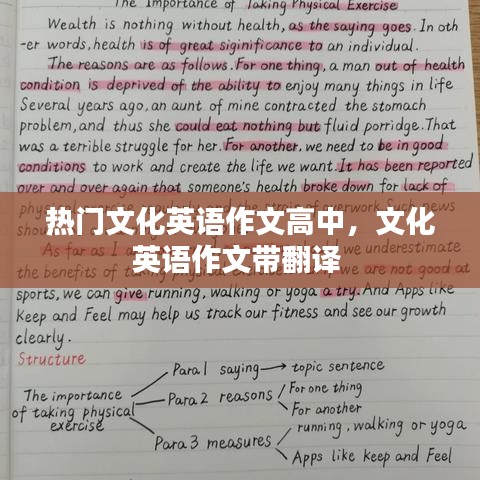 The Importance of Taking Physical Exercise
Wealth is nothing without health, as the saying goes. In oth
-er words, health is of great siginificance to an individual.
The reasons are as follows. For one thing, a man out of health
condition is deprived of the ability to enjoy many things in life
Several years ago, an aunt of mine contracted the stomach
problem, and thus she could eat nothing but fluid porridge. That
was a terrible struggle for her. For another, we need to be in good
conditions to work and create the life we want. It has been reported
over and over again that someone's health broke down for lack of
热门文化英语作文高中，文化
英语作文带翻译
As far as I
underestimate
the benefits of
are not good at
sports, we can give running, walking or yoga a try. And Apps like
Keep and Feel may help us track our fitness and see our growth
clearly.
Structure
The importance
of taking physical
exercise
Para 1 saying → topic sentence
Para 2 reasons
For one thing
For another
Para 3 measures
running, walking or yoga
Apps like Keep and Feel